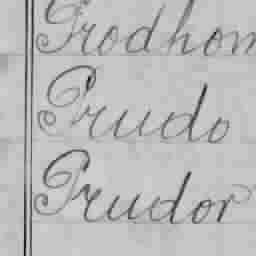 Prodhom
Prudo
Prudor